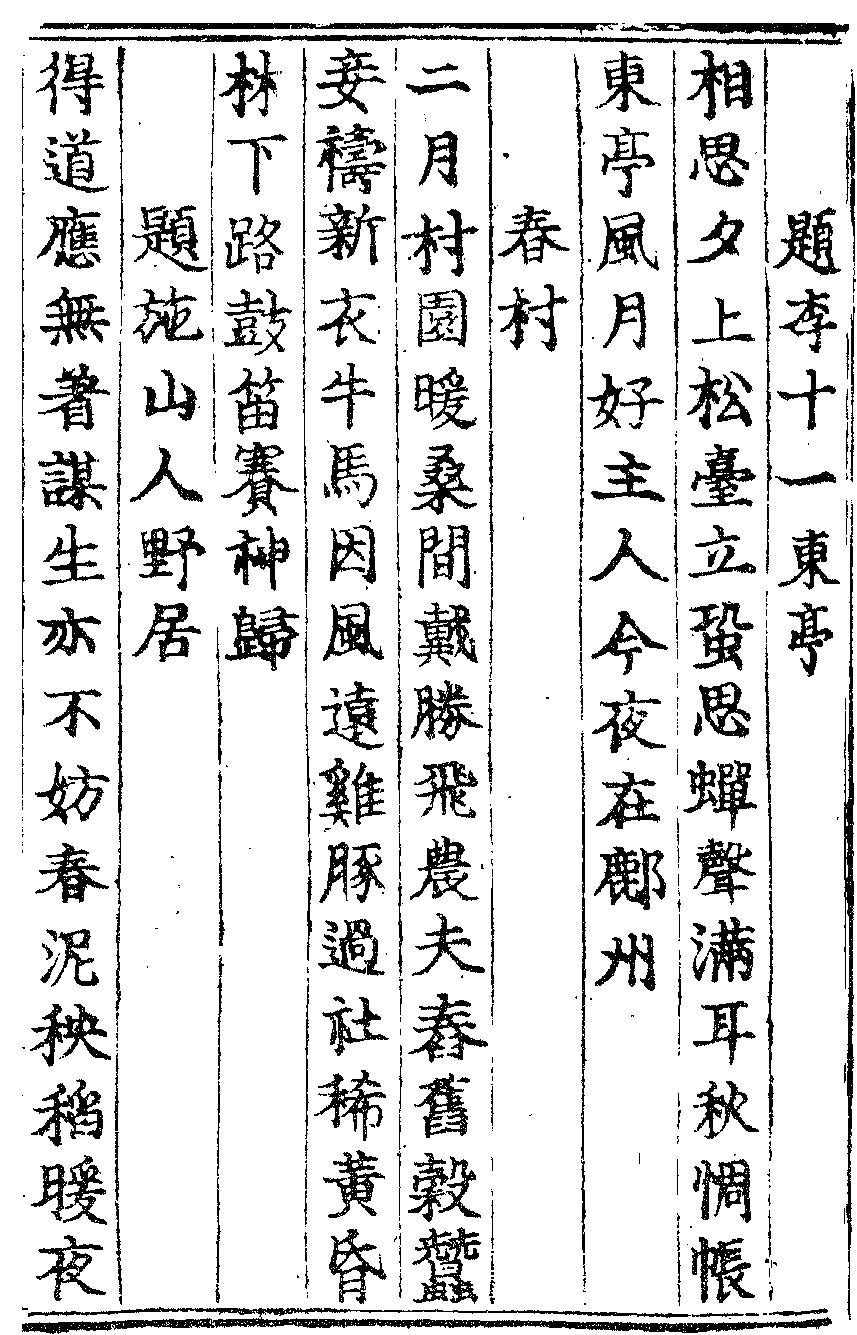 題李十一東亭
相思夕上松臺立蛩思蟬聲滿耳秋惆悵
東亭風月好主人今夜在鄜州
春村
二月村園暖桑間戴勝飛農夫舂舊穀蠶
妾禱新衣牛馬因風遠雞豚過社稀黃昏
林下路鼓笛賽神歸
題施山人野居
得道應無著謀生亦不妨春泥秧稻暖夜